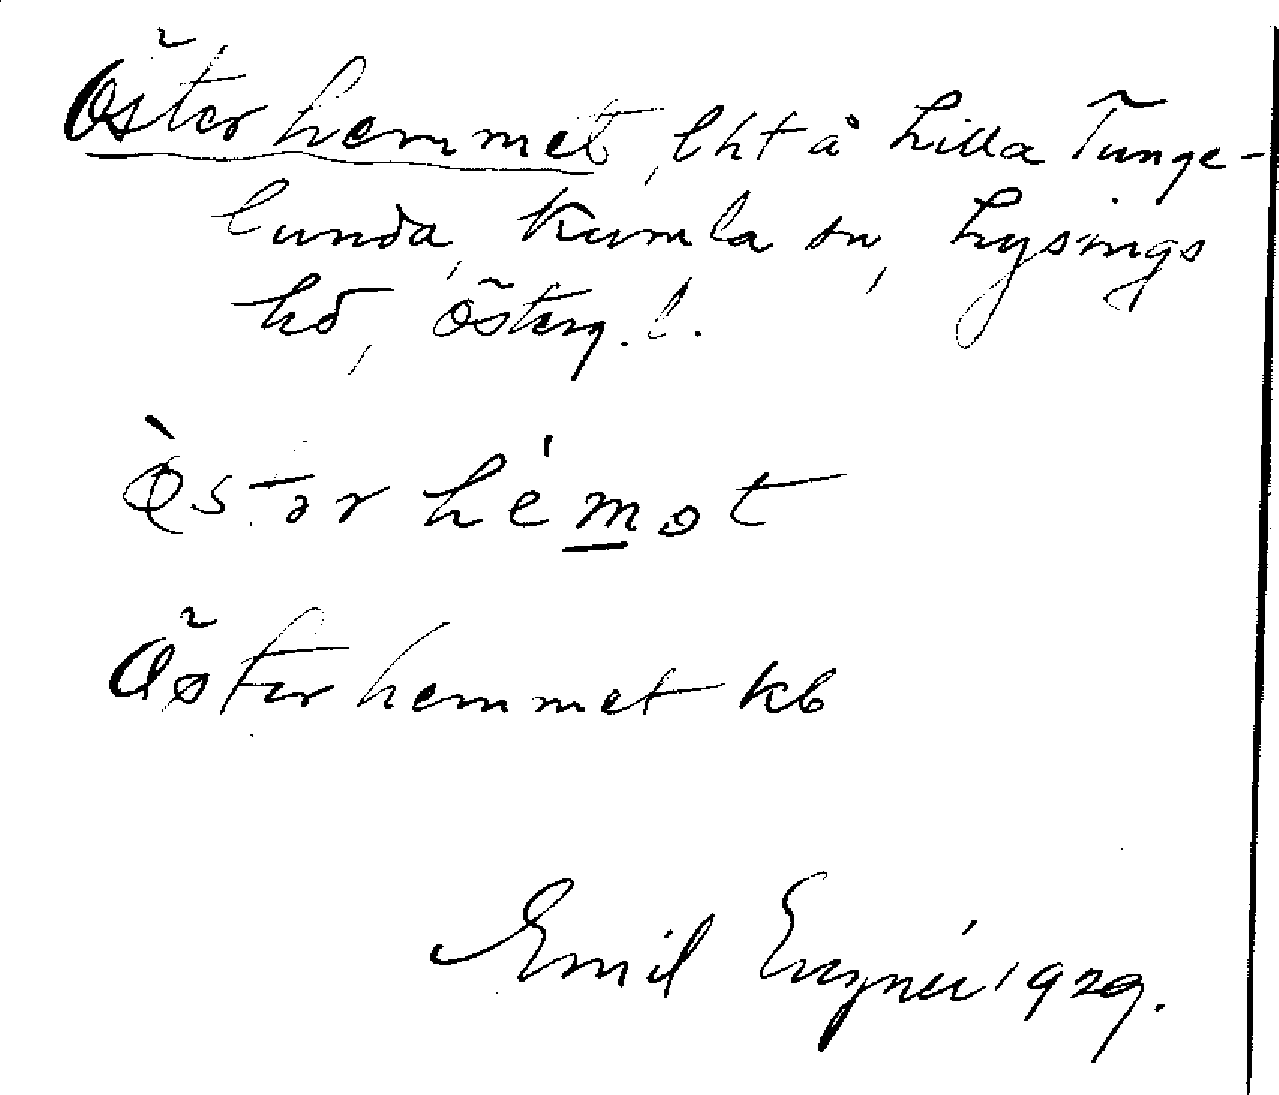 Österhemmet, lht å Lilla Tunge-
lunda, Kumla sn, Lysings
hd, Österg. l.
Österhemmet kb
Emil 1929.